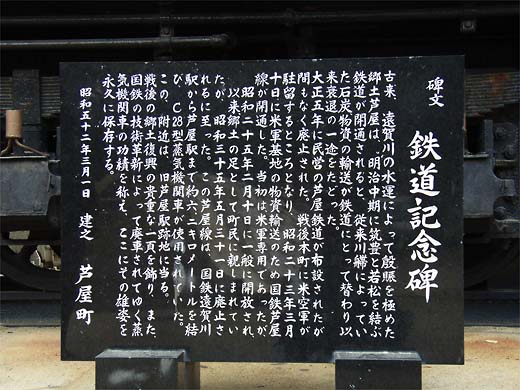 碑文
鉄道記念碑
古来、遠賀川の水運によって殷賑を極めた
郷土芦屋は、明治中期に筑豊と若松を結ぶ
鉄道が開通されると、従来川艜によってい
た石炭物資の輸送が鉄道にとって替わり以
来衰退の一途をたどった。
大正五年に民営の芦屋鉄道が布設されたが
間もなく廃止された。戦後本町に米空軍が
駐留するところとなり、昭和二十三年三月
十日に米軍基地の物資輸送のため国鉄芦屋
線が開通した。当初は米軍専用であったが
昭和二十五年二月十日に一般に開放され、
以来郷土の足として町民に親しまれてい
たが、昭和三十五年五月三十一日に廃止さ
れるに至った。この芦屋線は、国鉄遠賀川
駅から芦屋駅まで約六・二キロメートルを結
び、C28型蒸気機関車が使用されていた。
この、附近は、旧芦屋駅跡地に当る。
戦後の郷土復興の貴重な一頁を飾り、また、
国鉄の技術革新によって廃車されてゆく蒸
気機関車の功績を称え、ここにその雄姿を
永久に保存する。
昭和五十二年三月一日 建之 芦屋町